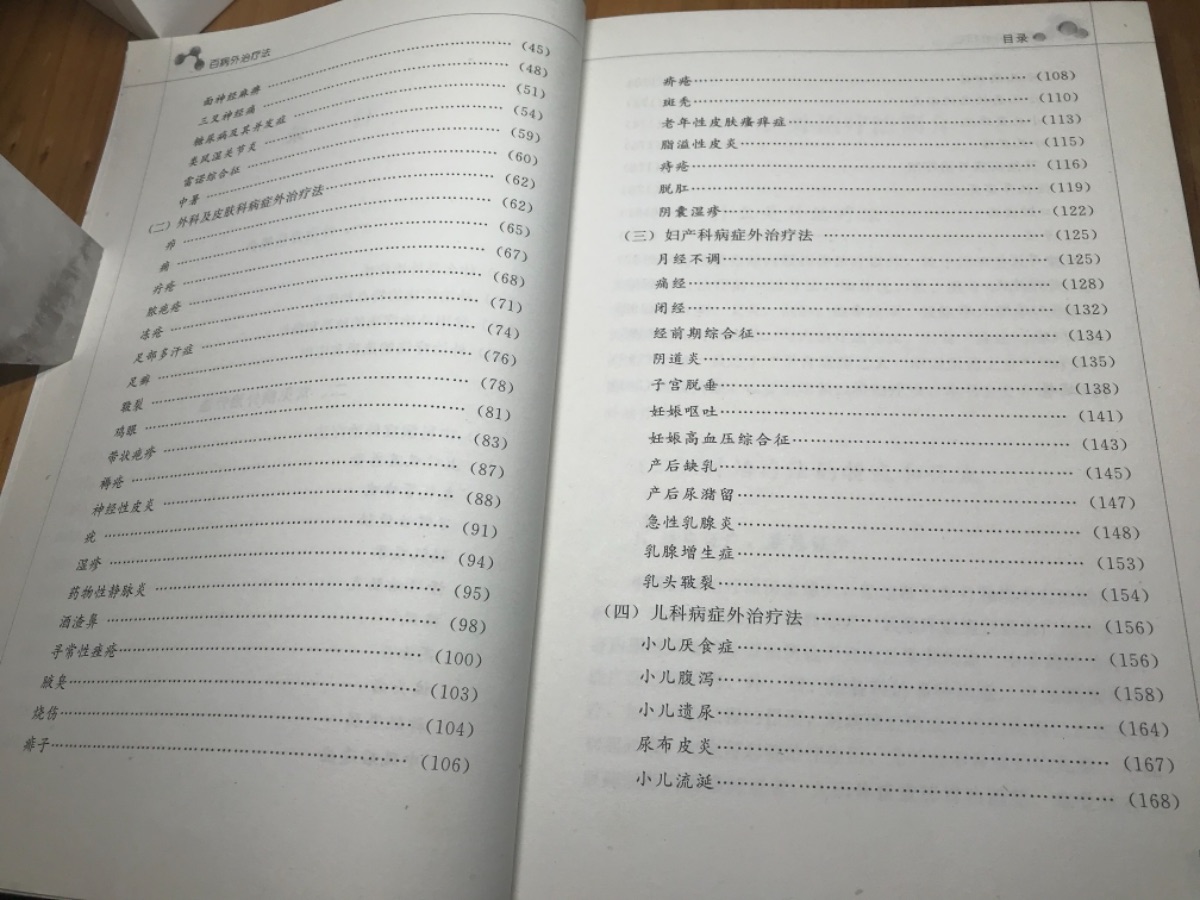 百病外治疗法
面神经麻痹……………………(45)
三叉神经痛……………………(48)
糖尿病及其并发症……………………(51)
类风湿关节炎……………………(54)
雷诺综合征……………………(59)
中暑……………………(60)
(二)外科及皮肤科病症外治疗法……………………(62)
疖……………………(62)
痈……………………(65)
疔疮……………………(67)
脓疱疮……………………(68)
冻疮……………………(71)
足部多汗症……………………(74)
足癣……………………(76)
皲裂……………………(78)
鸡眼……………………(81)
带状疱疹……………………(83)
褥疮……………………(87)
神经性皮炎……………………(88)
疣……………………(91)
湿疹……………………(94)
药物性静脉炎……………………(95)
酒渣鼻……………………(98)
寻常性痤疮……………………(100)
腋臭……………………(103)
烧伤……………………(104)
痱子……………………(106)
目录
疥疮……………………(108)
斑秃……………………(110)
老年性皮肤瘙痒症……………………(113)
脂溢性皮炎……………………(115)
痔疮……………………(116)
脱肛……………………(119)
阴囊湿疹……………………(122)
(三)妇产科病症外治疗法……………………(125)
月经不调……………………(125)
痛经……………………(128)
闭经……………………(132)
经前期综合征……………………(134)
阴道炎……………………(135)
子宫脱垂……………………(138)
妊娠呕吐……………………(141)
妊娠高血压综合征……………………(143)
产后缺乳……………………(145)
产后尿潴留……………………(147)
急性乳腺炎……………………(148)
乳腺增生症……………………(153)
乳头皲裂……………………(154)
(四)儿科病症外治疗法……………………(156)
小儿厌食症……………………(156)
小儿腹泻……………………(158)
小儿遗尿……………………(164)
尿布皮炎……………………(167)
小儿流涎……………………(168)